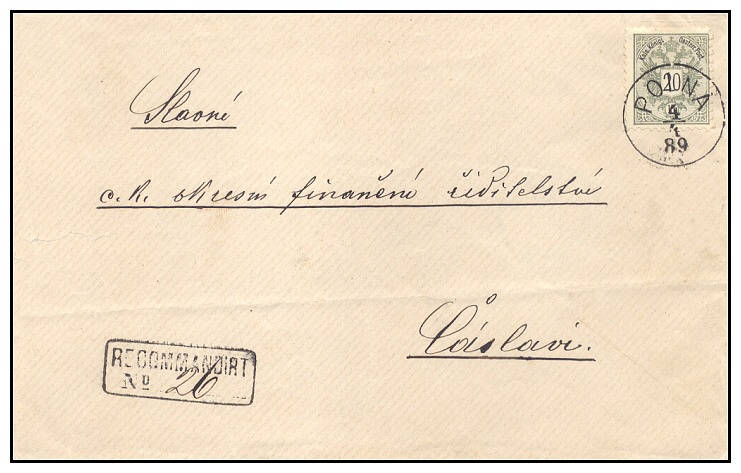 Kais. Königl. Oesterr. Post
20
POLNÁ
4
4
89
Slavné
c. k. okresní finanční ředitelství
Čáslavi.
RECOMMANDIRT
No 26